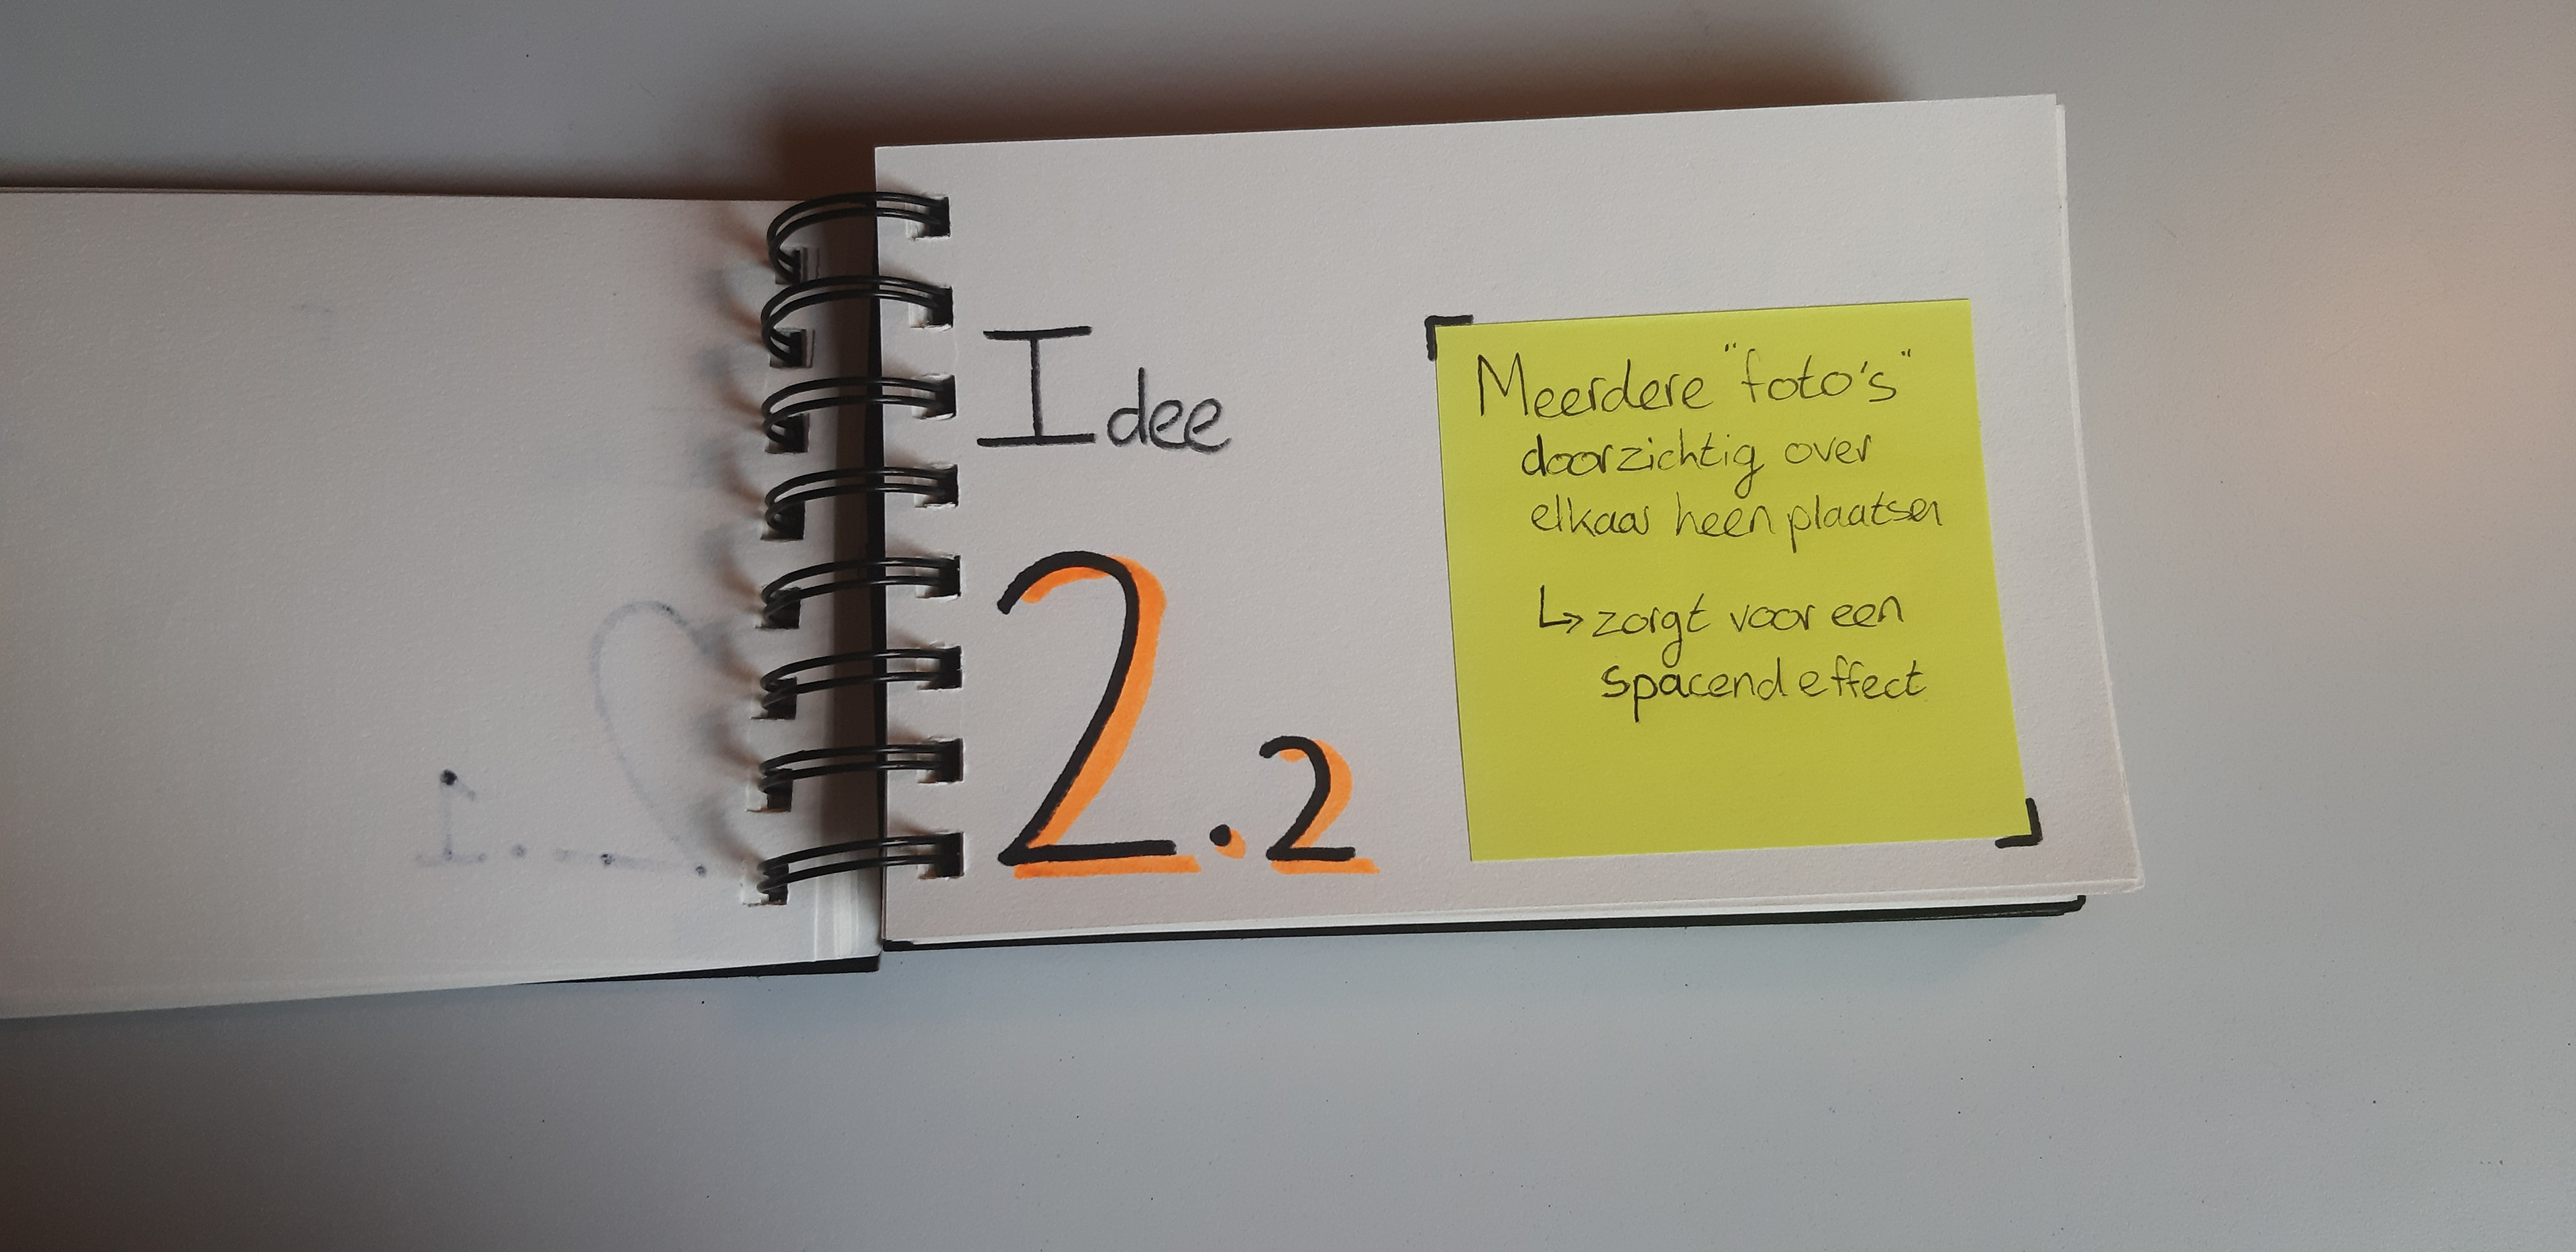 Idee
2.2
Meerdere "foto's"
doorzichtig over
elkaar heen plaatsen
↳ zorgt voor een
spacend effect